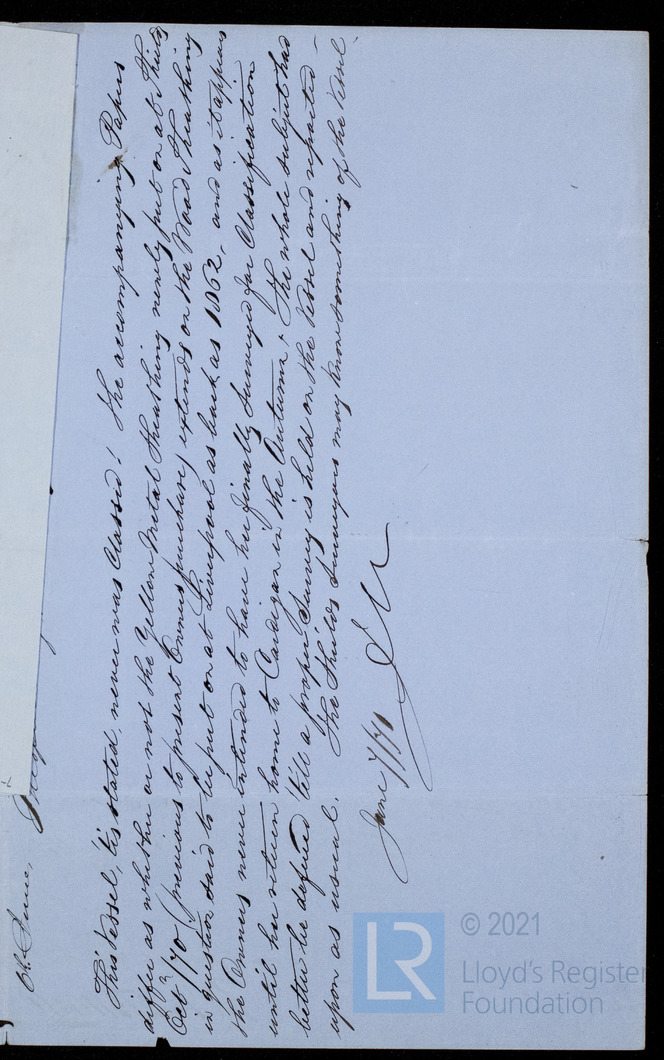 This Vessel, 'tis stated, never was Classed! The accompanying Papers
differ as whether or not the Yellow Metal Sheathing newly put on at Shields
Feby /70 (previous to present Owners purchase) extends on the Wood Sheathing
in question said to be put on at Liverpool as back as 1862, and as it appears
the Owners never intended to have her finally Surveyed for Classification
until her return home to Cardigan in the Autumn, The whole subject had
better be deferred till a proper Survey is held on the Vessel and reported
upon as usual. The Shields Surveyors may know something of the Vessel
June 7/70
© 2021
Lloyd's Register
Foundation
LR